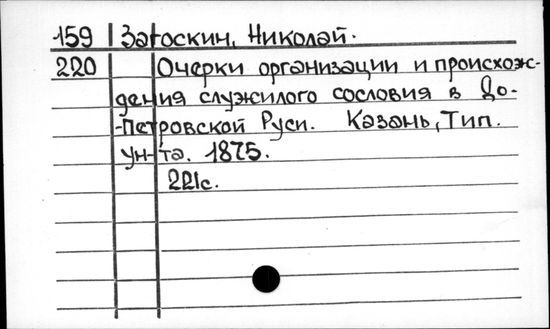 159 Загоскин, Николай.
220 Очерки организации и происхож-
дения служилого сословия в До-
-Петровской Руси. Казань, Тип.
Ун-та. 1875.
221с.